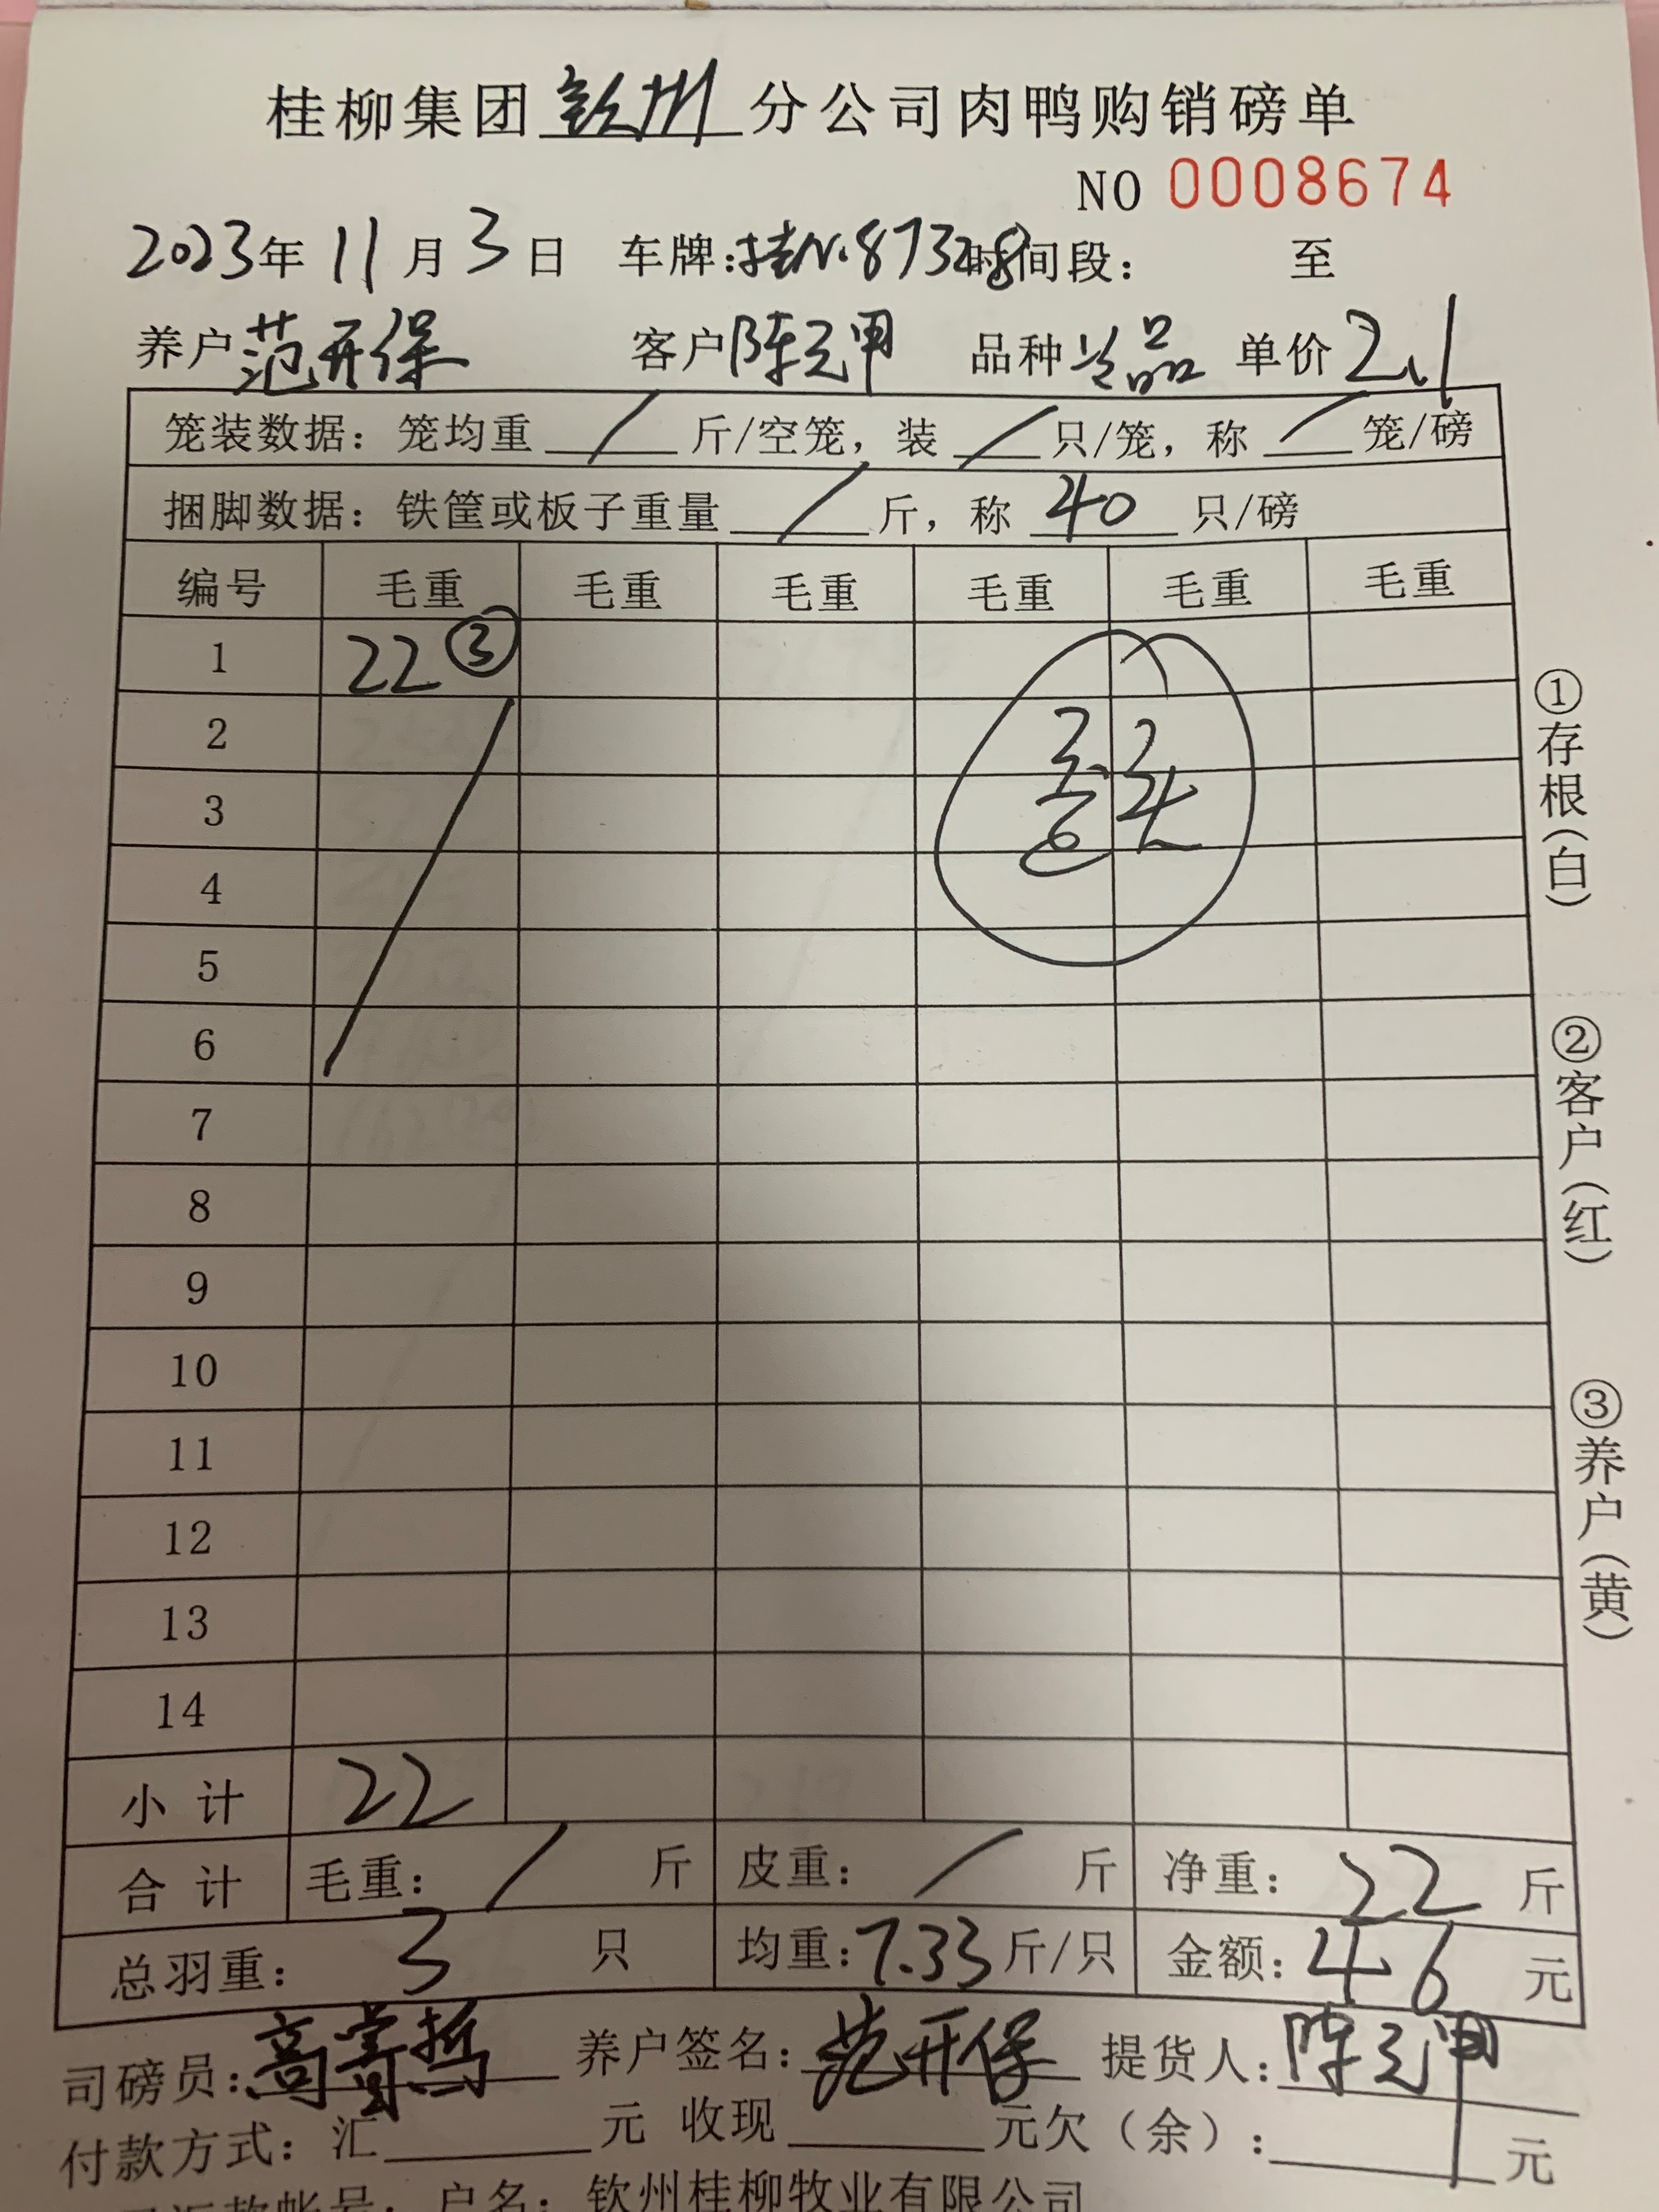 桂柳集团钦州分公司肉鸭购销磅单
NO 0008674
2023年11月3日 车牌:桂N·87328时间段: 至
养户范开保 客户陈元甲 品种 品 单价2.1
笼装数据: 笼均重 / 斤/空笼, 装 / 只/笼, 称 / 笼/磅
捆脚数据: 铁筐或板子重量 / 斤, 称 40 只/磅
编号 毛重 毛重 毛重 毛重 毛重 毛重
1 22 ③
2
3
4
5
6
7
8
9
10
11
12
13
14
小计 22
合计 毛重: / 斤 皮重: / 斤 净重: 22 斤
总羽重: 3 只 均重: 7.33 斤/只 金额: 46 元
司磅员: 高 哲 养户签名: 范开保 提货人: 陈元甲
付款方式: 汇 元 收现 元欠(余): 元
户名: 钦州桂柳牧业有限公司
①存根(白)
②客户(红)
③养户(黄)